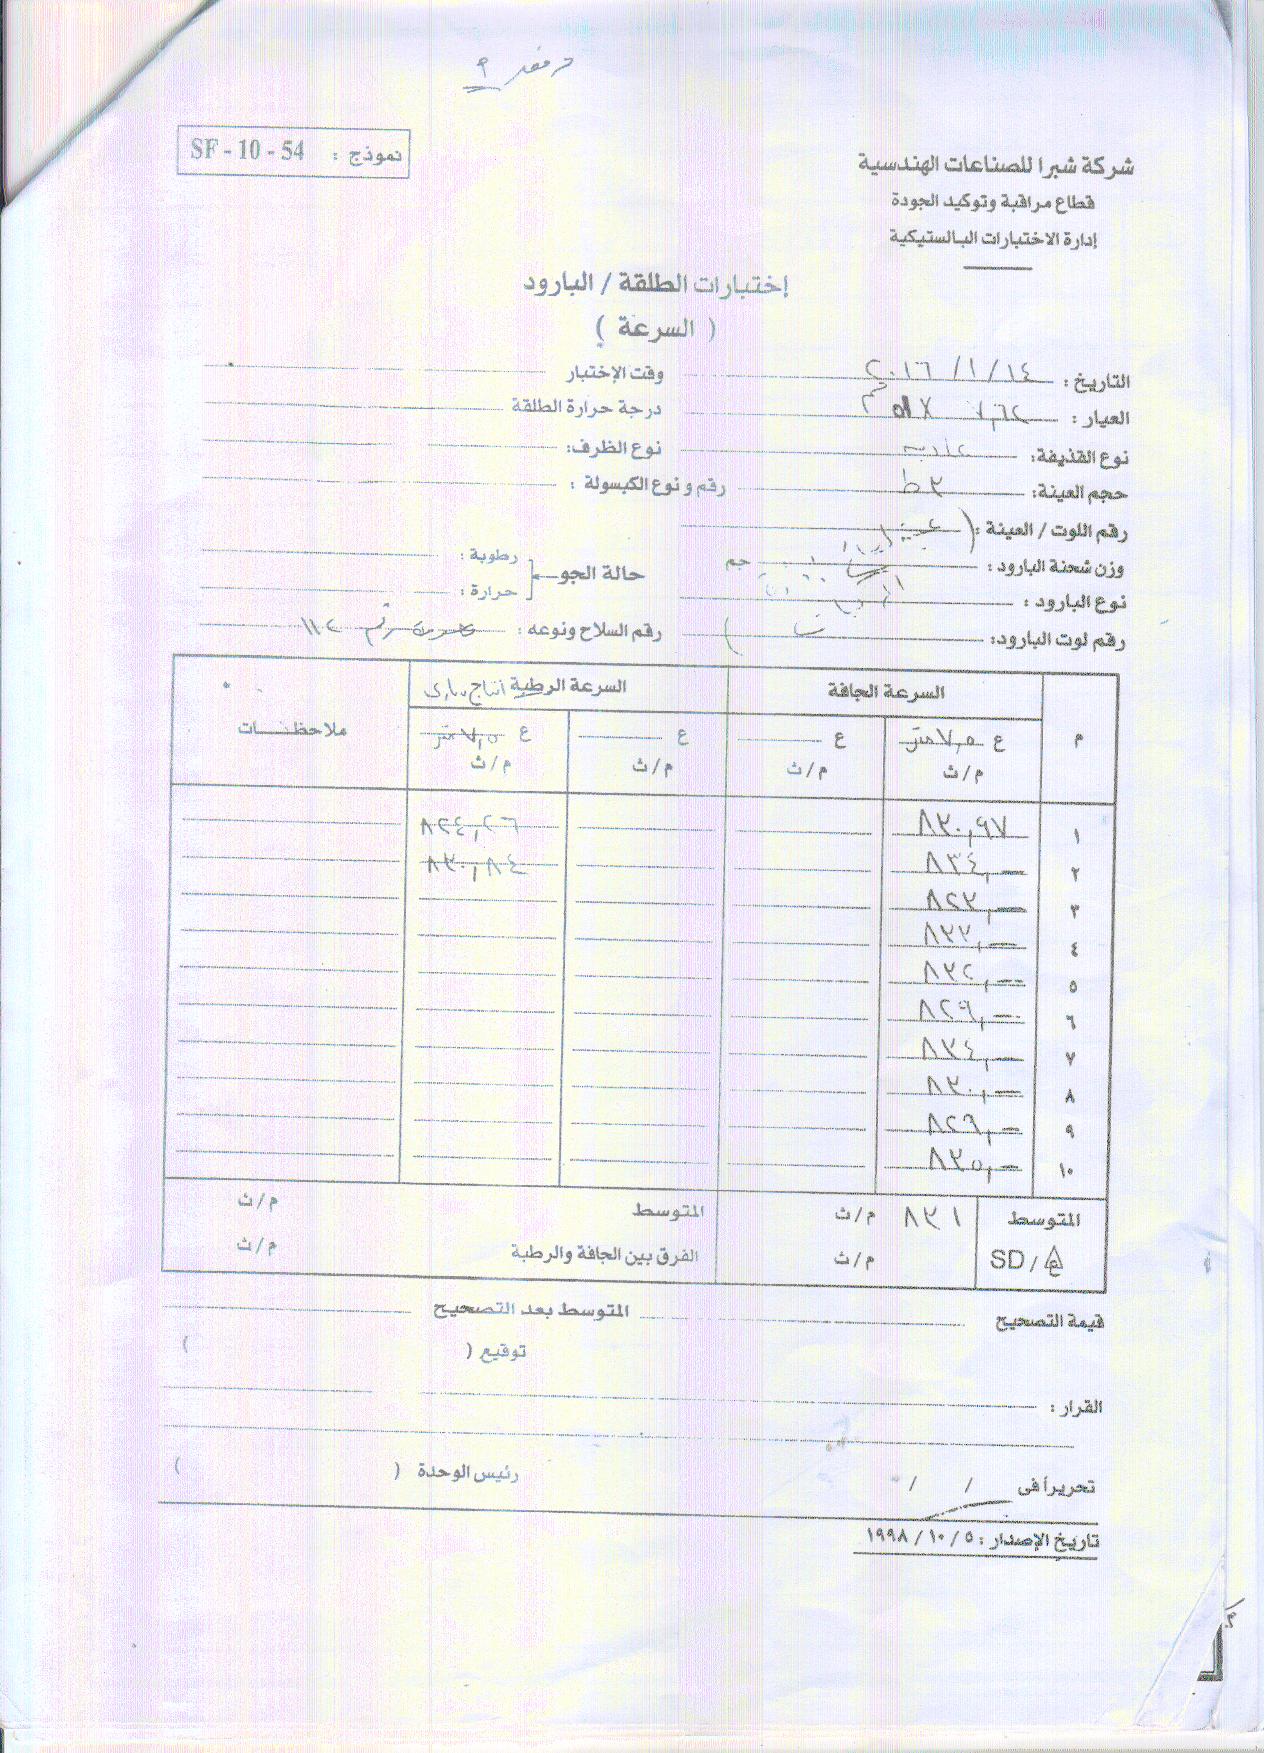 مرفق ٩
نموذج : SF - 10 - 54
شركة شبرا للصناعات الهندسية
قطاع مراقبة وتوكيد الجودة
إدارة الاختبارات البالستيكية
إختبارات الطلقة / البارود
( السرعة )
التاريخ : ١٤ / ١ / ٢٠١٦ وقت الإختبار
العيار : ٧,٦٢ × ٥١ درجة حرارة الطلقة
نوع القذيفة: عادية نوع الظرف:
حجم العينة: ٣ ط رقم و نوع الكبسولة :
رقم اللوت / العينة : ( عينة
وزن شحنة البارود : جم
نوع البارود :
حالة الجو
رطوبة :
حرارة :
رقم لوت البارود: ) رقم السلاح ونوعه : رقم ١١٢
م السرعة الجافة السرعة الرطبة انتاج ملاحظات
ع ٧,٥ متر م/ث ع م/ث ع م/ث ع ٧,٥ متر م/ث
١ ٨٣٠,٩٧ ٨٢٤,٢٦
٢ ٨٣٤,— ٨٣٠,٨٤
٣ ٨٢٣,—
٤ ٨٣٣,—
٥ ٨٣٢,—
٦ ٨٢٩,—
٧ ٨٣٤,—
٨ ٨٣٠,—
٩ ٨٢٦,—
١٠ ٨٣٥,—
المتوسط ٨٣١ م/ث المتوسط م/ث
SD / م/ث الفرق بين الجافة والرطبة م/ث
قيمة التصحيح المتوسط بعد التصحيح
توقيع ( )
القرار :
تحريراً فى / / رئيس الوحدة ( )
تاريخ الإصدار : ٥ / ١٠ / ١٩٩٨